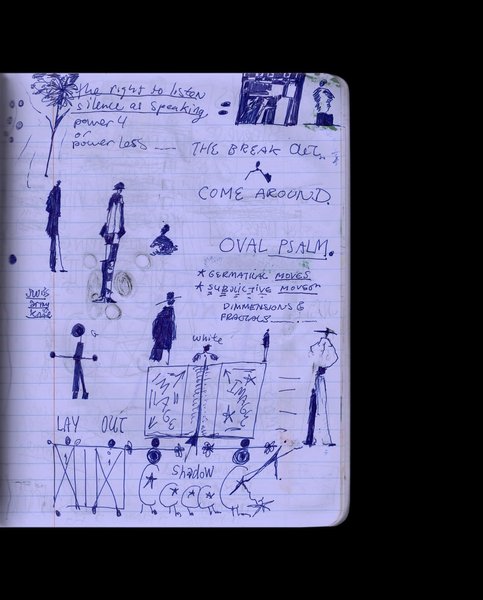 The right to listen
silence as speaking
power 4
or
powerless
THE BREAK OUT
COME AROUND.
OVAL PSALM.
* GERMATICAL MOVES
* SUBJECTIVE
DIMMENSIONS &
FRACTALS
white
LAY OUT
Shadow